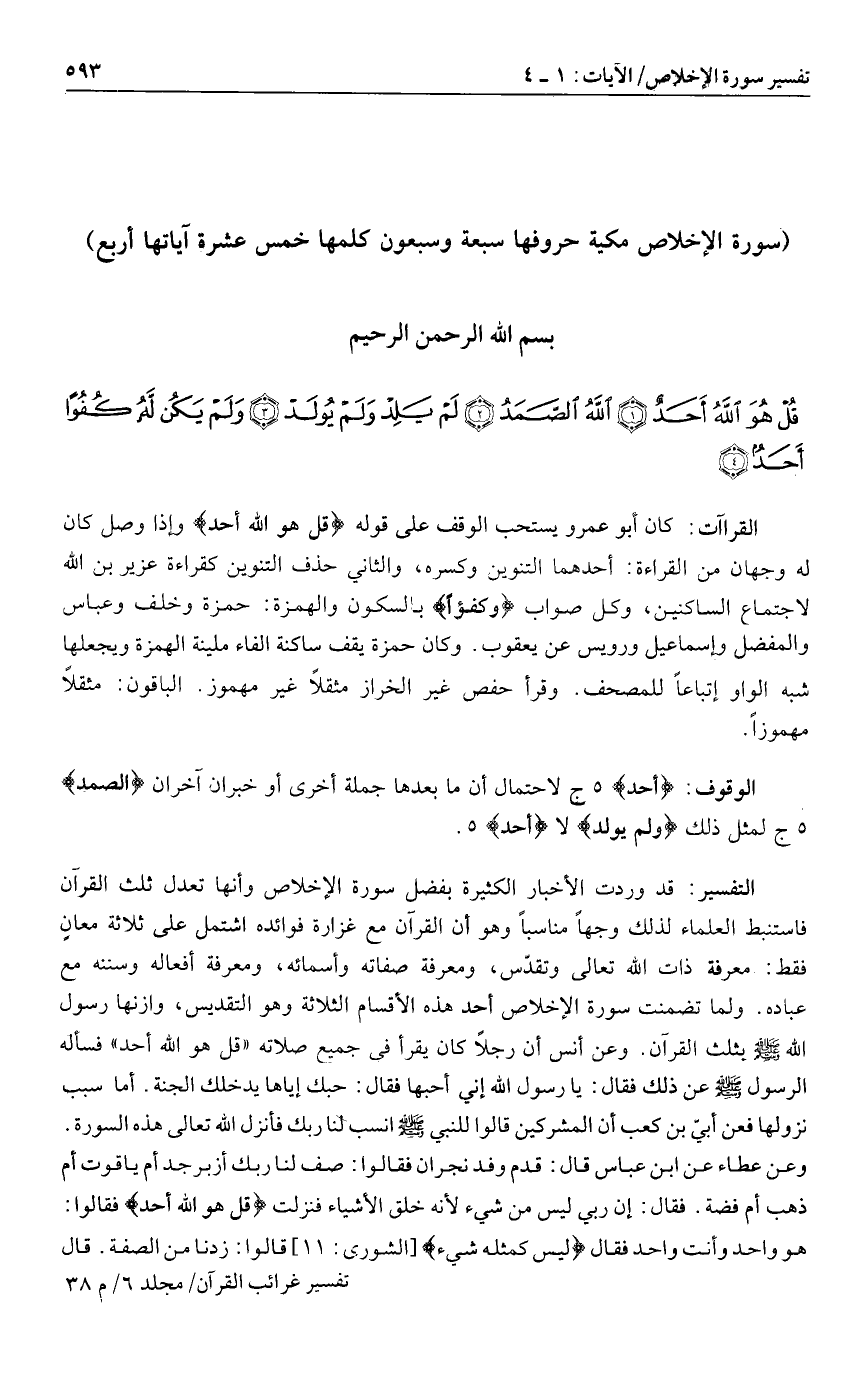 تفسير سورة الإخلاص/ الآيات: ١ ـ ٤
٥٩٣
(سورة الإخلاص مكية حروفها سبعة وسبعون كلمها خمس عشرة آياتها أربع)
بسم الله الرحمن الرحيم
قُلْ هُوَ ٱللَّهُ أَحَدٌ ١ ٱللَّهُ ٱلصَّمَدُ ٢ لَمْ يَلِدْ وَلَمْ يُولَدْ ٣ وَلَمْ يَكُن لَّهُۥ كُفُوًا
أَحَدٌۢ ٤
القراآت: كان أبو عمرو يستحب الوقف على قوله ﴿قل هو الله أحد﴾ وإذا وصل كان
له وجهان من القراءة: أحدهما التنوين وكسره، والثاني حذف التنوين كقراءة عزير بن الله
لاجتماع الساكنين، وكل صواب ﴿وكفؤاً﴾ بالسكون والهمزة: حمزة وخلف وعباس
والمفضل وإسماعيل ورويس عن يعقوب. وكان حمزة يقف ساكنة الفاء ملينة الهمزة ويجعلها
شبه الواو إتباعاً للمصحف. وقرأ حفص غير الخراز مثقلاً غير مهموز. الباقون: مثقلاً
مهموزاً.
الوقوف: ﴿أحد﴾ ٥ ج لاحتمال أن ما بعدها جملة أخرى أو خبران آخران ﴿الصمد﴾
٥ ج لمثل ذلك ﴿ولم يولد﴾ لا ﴿أحد﴾ ٥.
التفسير: قد وردت الأخبار الكثيرة بفضل سورة الإخلاص وأنها تعدل ثلث القرآن
فاستنبط العلماء لذلك وجهاً مناسباً وهو أن القرآن مع غزارة فوائده اشتمل على ثلاثة معانٍ
فقط: معرفة ذات الله تعالى وتقدّس، ومعرفة صفاته وأسمائه، ومعرفة أفعاله وسننه مع
عباده. ولما تضمنت سورة الإخلاص أحد هذه الأقسام الثلاثة وهو التقديس، وازنها رسول
الله ﷺ بثلث القرآن. وعن أنس أن رجلاً كان يقرأ في جميع صلاته «قل هو الله أحد» فسأله
الرسول ﷺ عن ذلك فقال: يا رسول الله إني أحبها فقال: حبك إياها يدخلك الجنة. أما سبب
نزولها فعن أبيّ بن كعب أن المشركين قالوا للنبي ﷺ انسب لنا ربك فأنزل الله تعالى هذه السورة.
وعن عطاء عن ابن عباس قال: قدم وفد نجران فقالوا: صف لنا ربك أزبرجد أم ياقوت أم
ذهب أم فضة. فقال: إن ربي ليس من شيء لأنه خلق الأشياء فنزلت ﴿قل هو الله أحد﴾ فقالوا:
هو واحد وأنت واحد فقال ﴿ليس كمثله شيء﴾ [الشورى: ١١] قالوا: زدنا من الصفة. قال
تفسير غرائب القرآن/ مجلد ٦/ م ٣٨